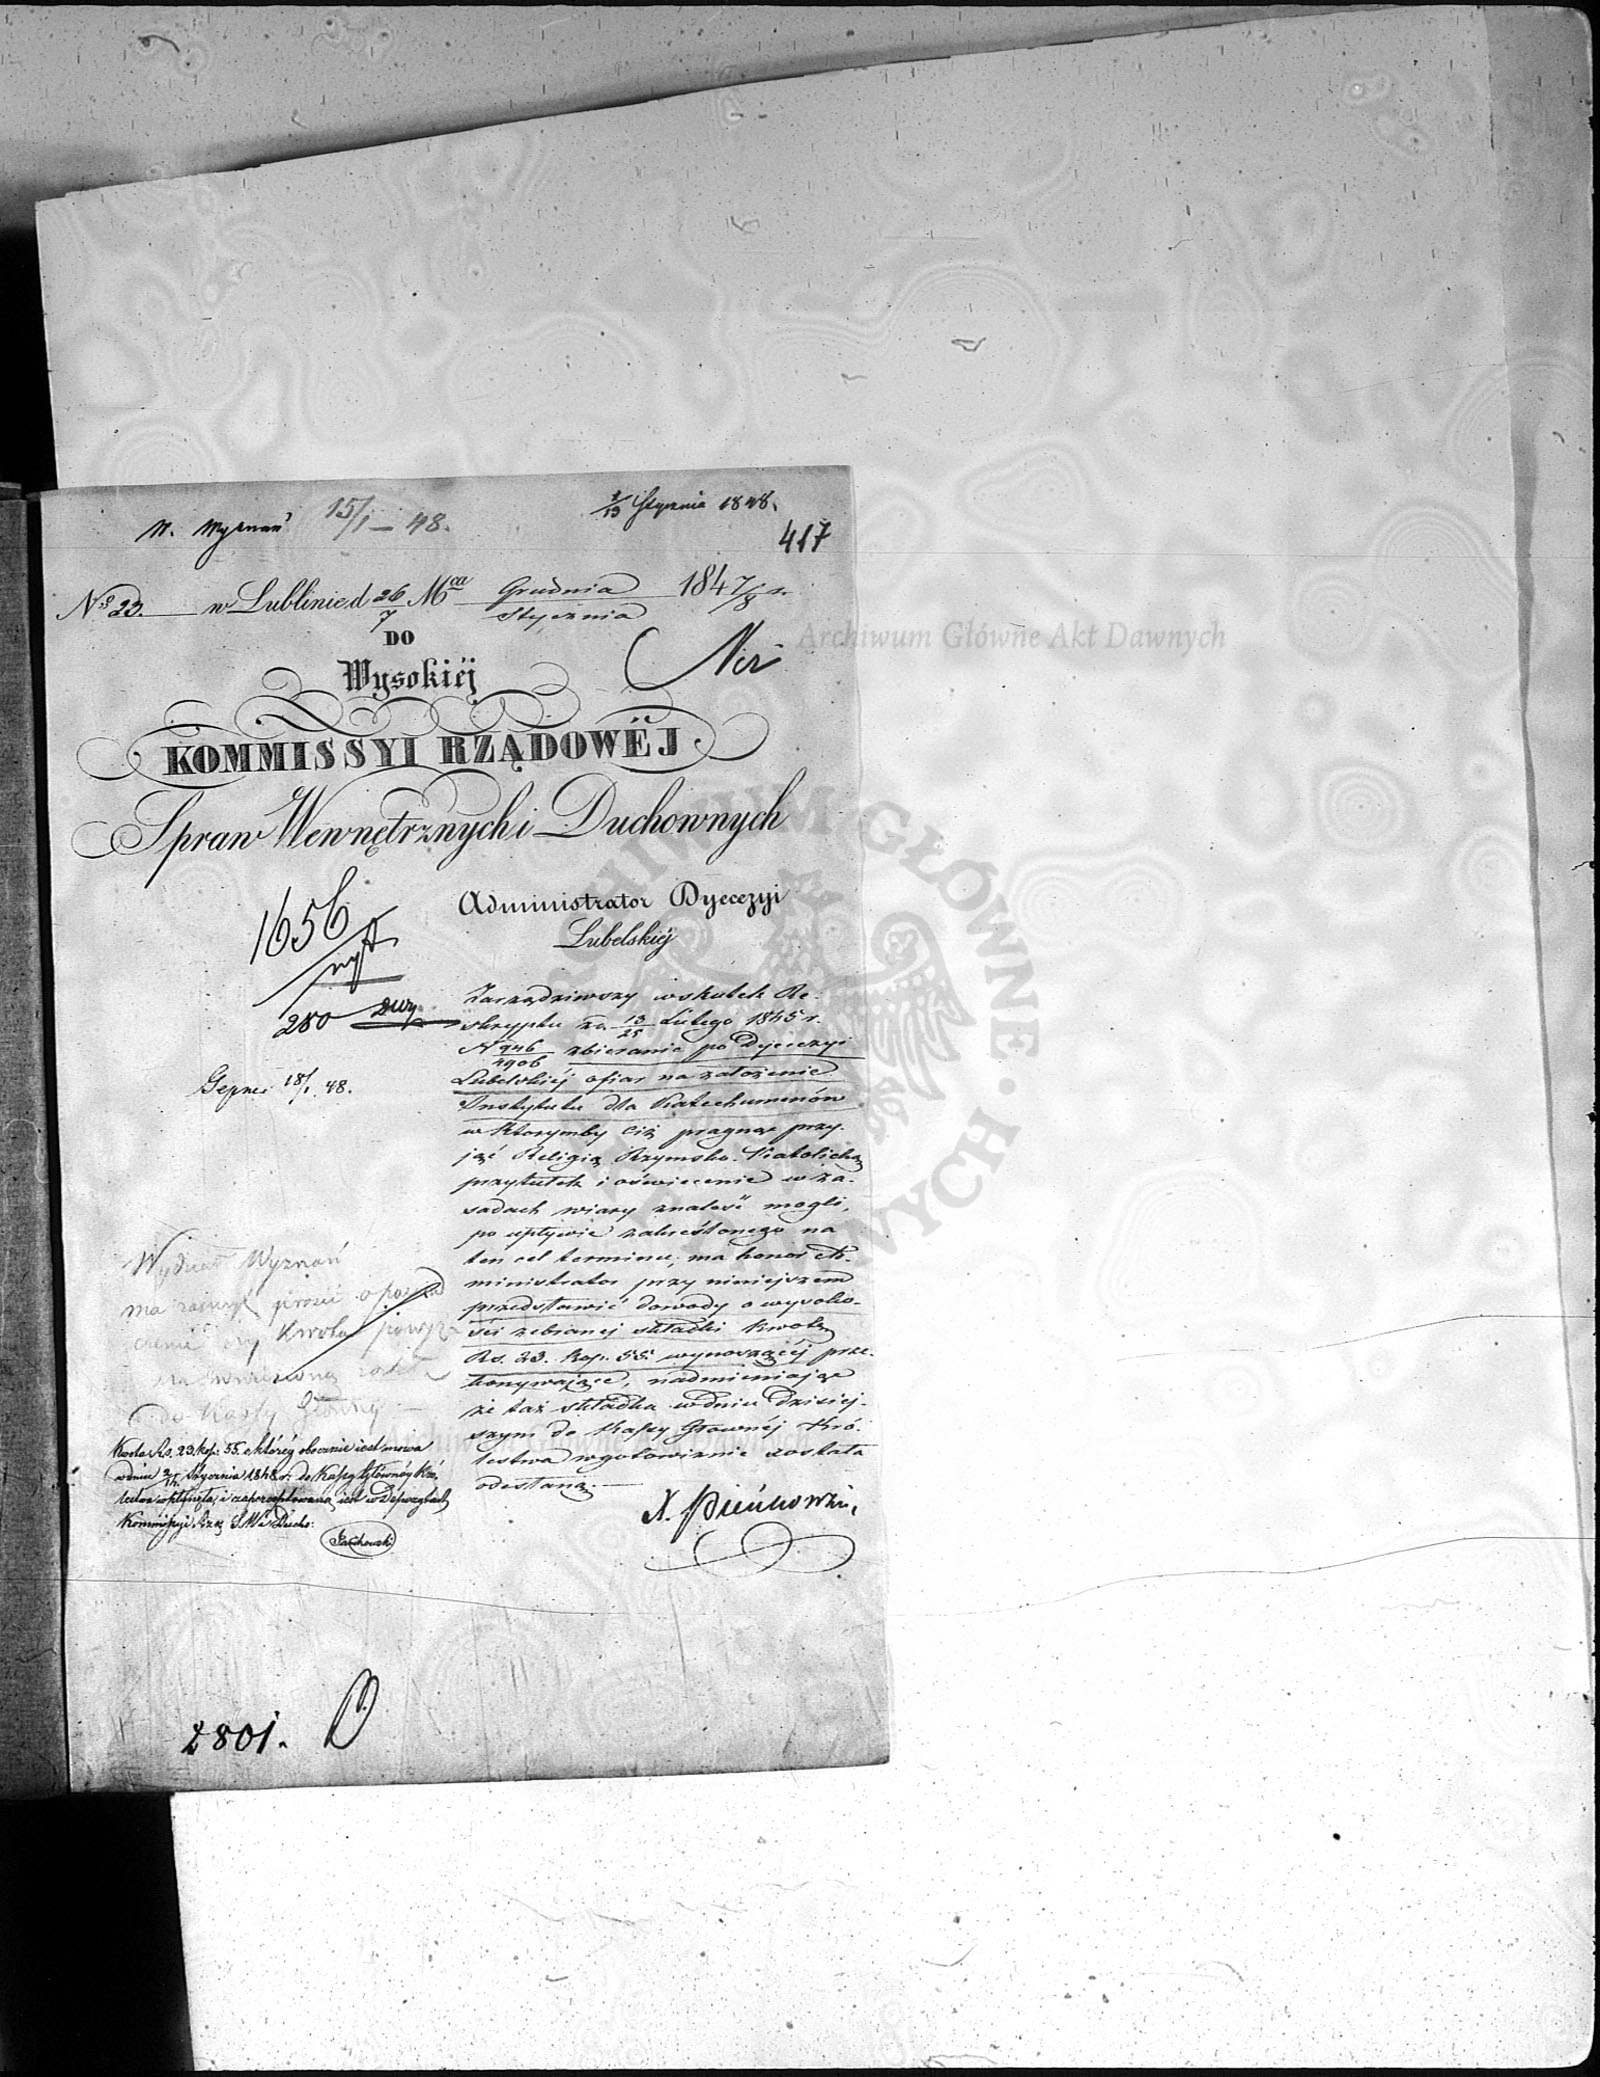 W. Wyznań 15/1 – 48. 1/13 Stycznia 1848.
417
No 23. w Lublinie d. 26/7 Mca Grudnia/Stycznia 1847/8 r.
DO
Wysokiéj
KOMMISSYI RZĄDOWÉJ
Spraw Wewnętrznych i Duchownych
1656
280
18/1. 48.
Administrator Dyecezyi
Lubelskiéj
Zarządziwszy wskutek Re-
skryptu za 13/25 Lutego 1845 r.
N 946/4906 zbieranie po Dyecezyi
Lubelskiéj ofiar na założenie
Instytutu dla Katechumenów
w którymby Ciż pragnąc przy-
jąć Religią Rzymsko-Katolicką
przytułek i oświecenie w za-
sadach wiary znaleść mogli,
po upływie zakreślonego na
ten cel terminu, ma honor Ad-
ministrator przy niniejszem
przedstawić dowody o wysoko-
ści zebranej składki kwotę
Rs. 23. kop. 55. wynoszącéj prze-
konywające, nadmieniając
że taż składka w dniu dzisiej-
szym do Kassy Głównéj Kró-
lestwa w gotowiznie została
odesłaną.
Wydział Wyznań
ma zaszczyt prosić o
czy kwota powyż-
do Kassy Głównéj
Kwota Rs. 23. kop. 55. o któréj obecnie iest mowa
w dniu Stycznia 1848 r. do Kassy Głównéj Kró-
lestwa wpłynęła, i zapercepowana iest w Depozytach
Kommissyi Rzą. S. W. i Ducho:
2801.
Archiwum Główne Akt Dawnych
ARCHIWUM GŁÓWNE AKT DAWNYCH
Archiwum Główne Akt Dawnych